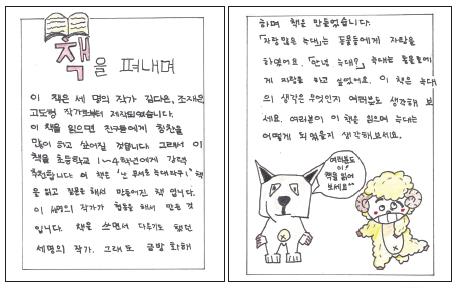 책을 펴내며
이 책은 세 명의 작가 김다은, 조재은,
고도형 작가로부터 제작되었습니다.
이 책을 읽으면 친구들에게 칭찬을
많이 하고 싶어질 것입니다. 그래서 이
책을 초등학교 1~4학년에게 강력
추천합니다. 이 책은 '난 무서운 늑대라구!' 책
을 읽고 질문을 해서 만들어진 책 입니다.
이 세명의 작가가 협동을 해서 만든 것
입니다. 책을 쓰면서 다투기도 했던
세명의 작가. 그래도 금방 화해
하며 책을 만들었습니다.
「자랑많은 늑대」는 동물들에게 자랑을
하였어요. 「안녕 늑대?」 늑대는 동물들에
게 자랑을 하고 싶었어요. 이 책은 늑대
의 생각은 무엇인지 여러분도 생각해 보
세요. 여러분이 이 책을 읽으며 늑대는
어떻게 되었을지 생각해보세요.
여러분도
이!
책을 읽어
보세요^^